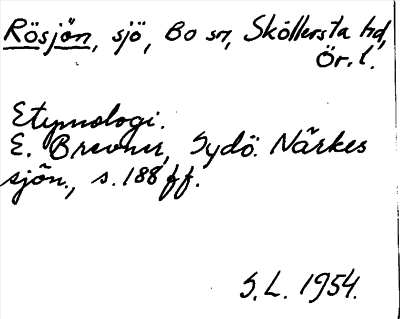 Rösjön, sjö, Bo sn, Sköllersta hd,
Ör. l.
Etymologi.
E. Brevner, Sydö. Närkes
sjön., s. 188 ff.
S.L. 1954.